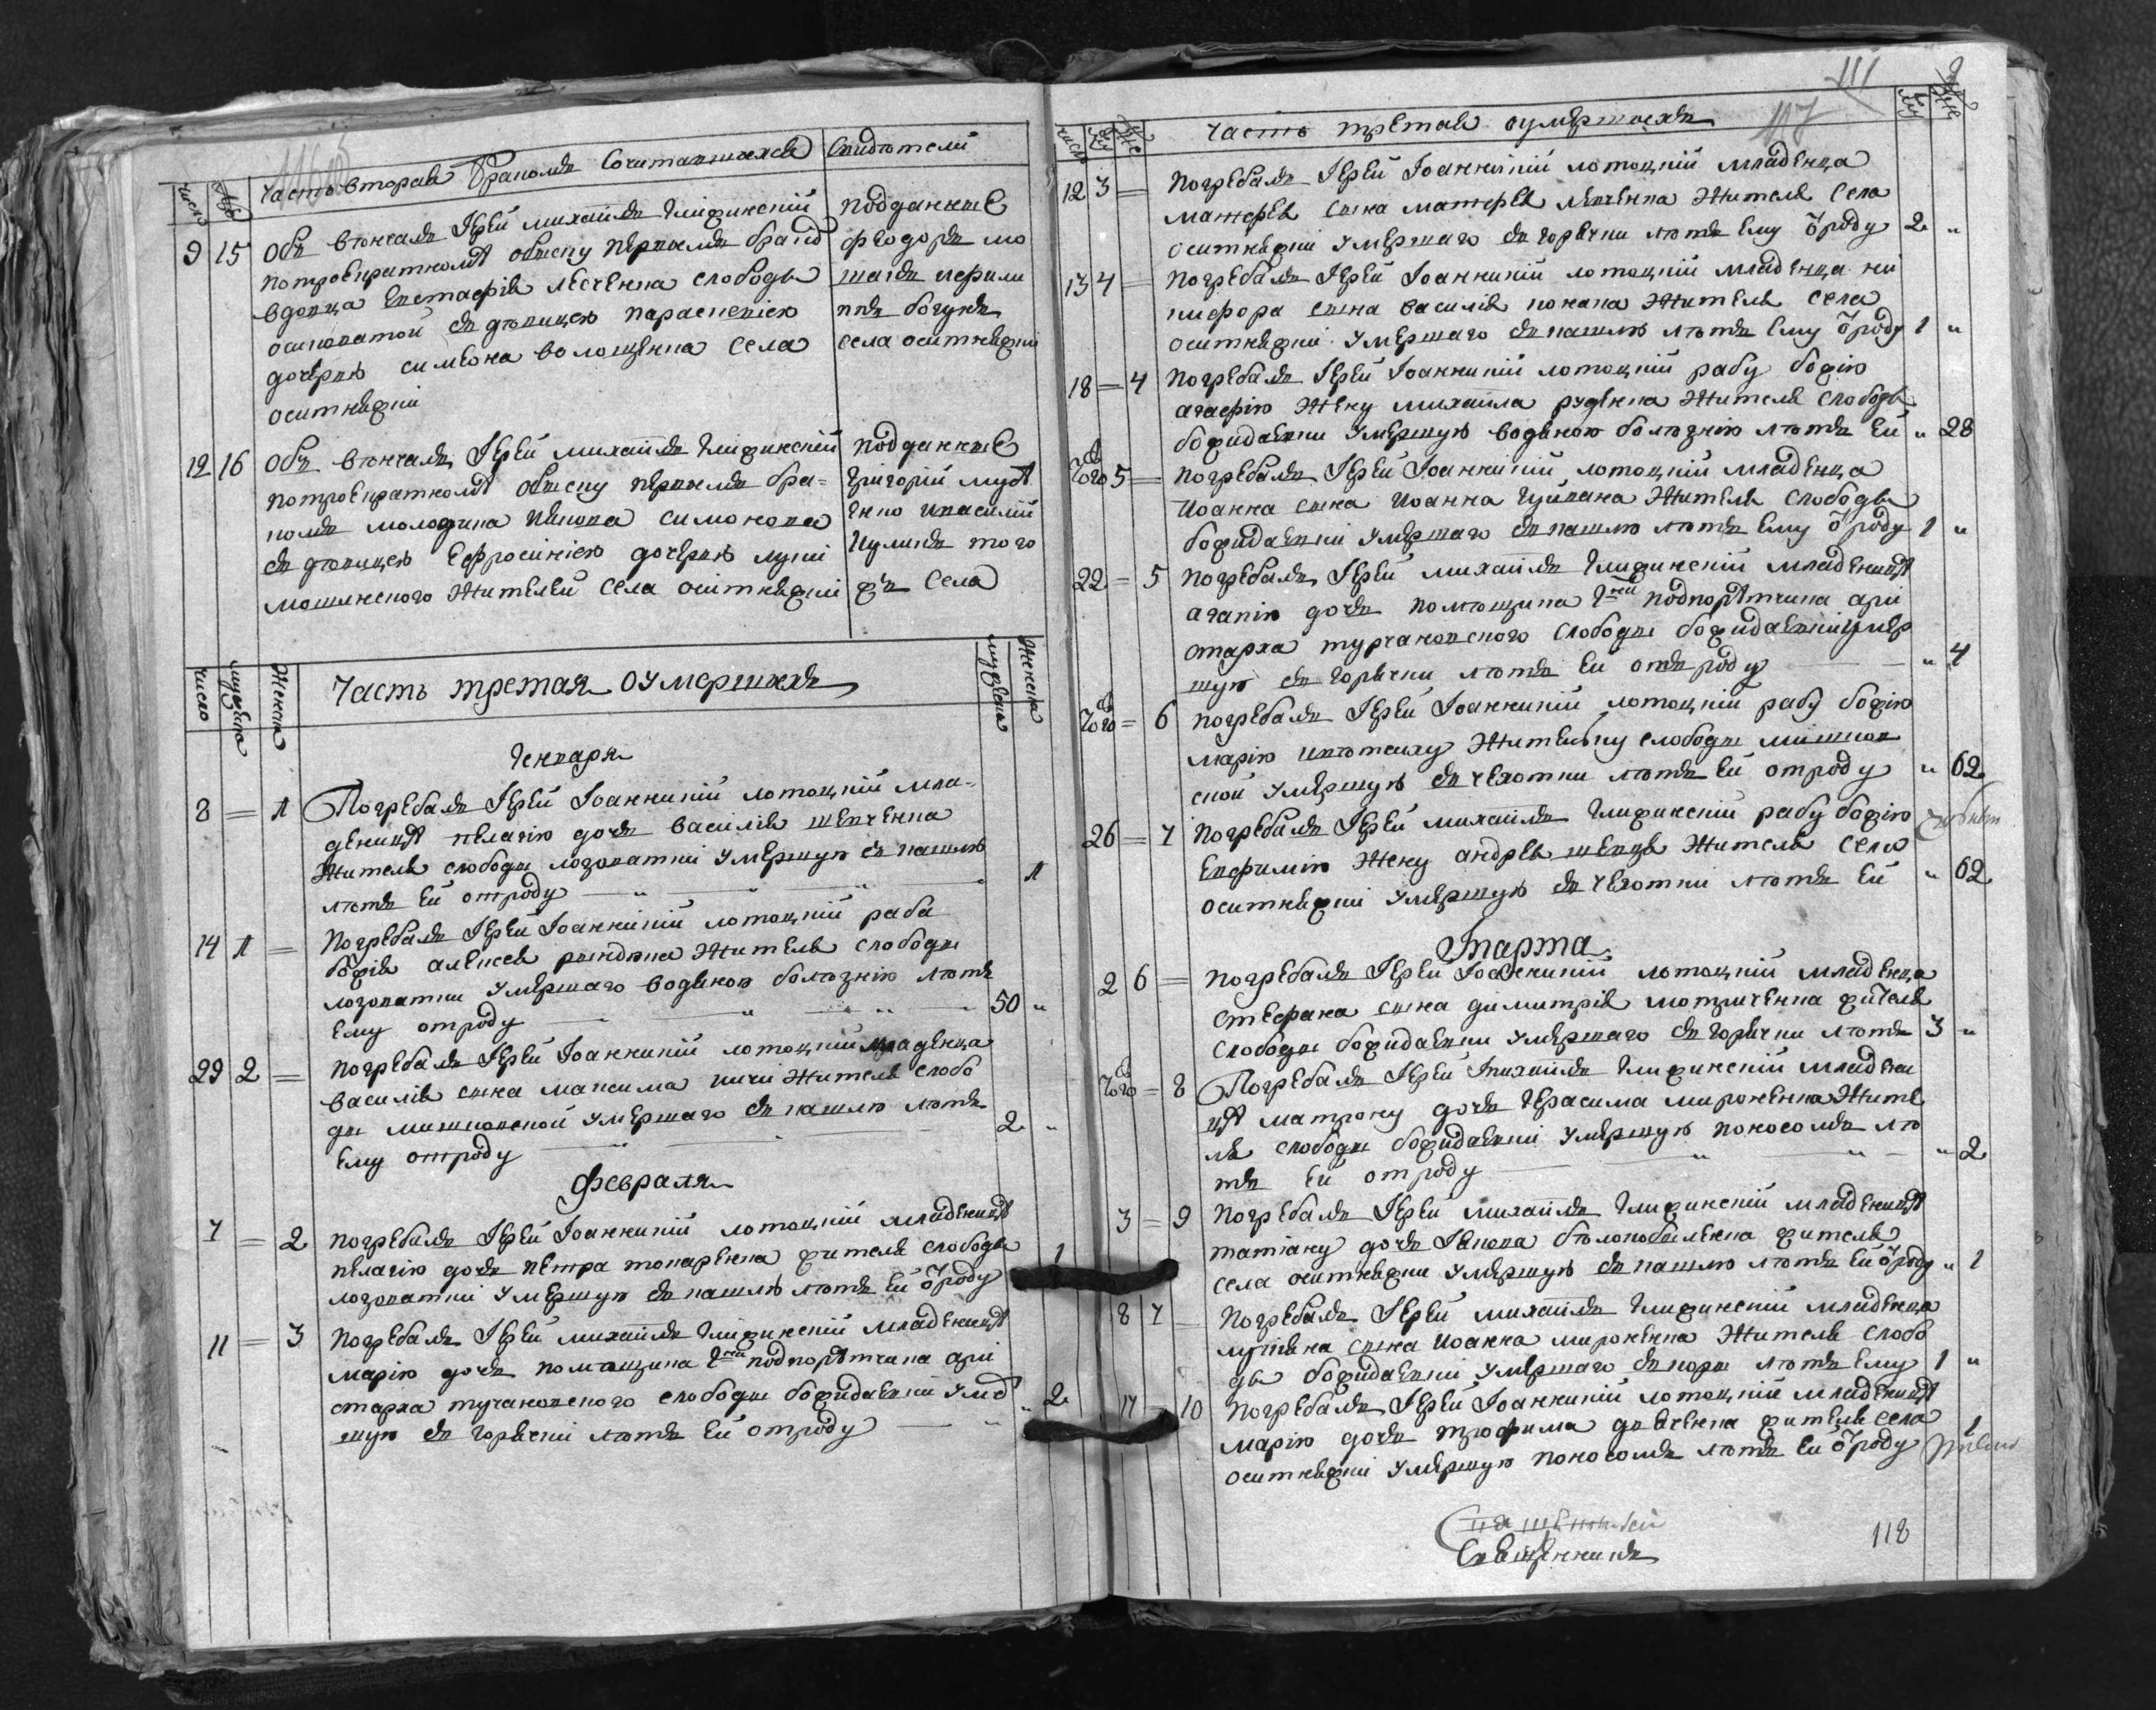 Часть вторая Бракомъ Сочитавшихся Свидѣтели
число
9 15 Обвѣнчалъ Іерей михаилъ Глижинскій подданные
потроекратномъ обыску первымъ бракъ феодоръ мо
вдовца Евстафія Лесченка слободы шагъ ифили
осиковатой съ девицею параскевією ппъ богунъ
дочерью симеона волощенка села села оситняжки
оситняжки
12 16 Обвѣнчалъ Іерей михаилъ Глижинскій подданные
потроекратномъ обыску первымъ бра= григорій
комъ молодика Ивана симонова василій
съ девицею Ефросиніею дочерью луки Куликъ того
мошинского жителей села оситняжки жъ села
число мужеска женска Часть третая оумершихъ мужеска женска
Генваря
8 = 1 Погребалъ Іерей Іоанникій лотоцкій мла-
денца пелагію дочь василія шевченка
жителя слободы лозоватки умершую съ кашлю
лѣтъ ей отроду 1
14 1 = Погребалъ Іерей Іоанникій лотоцкій раба
божія алексея жителя слободы
лозоватки умершаго водяною болѣзнію лѣтъ
ему отроду 50 "
29 2 = Погребалъ Іерей Іоанникій лотоцкій младенца
василія сына максима жителя слобо
ды умершаго съ кашлю лѣтъ
ему отроду 2 "
Февраля
7 = 2 погребалъ Іерей Іоанникій лотоцкій младенца
пелагію дочь петра токаренка жителя слободы
лозоватки умершую съ кашлю лѣтъ ей ѿроду 1
11 = 3 Погребалъ Іерей михаилъ Глижинскій младенца
марію дочь помещика Гна подпорутчика ари
старха турчановского слободы божидаевки умер
шую съ горячки лѣтъ ей отроду " 2
111
117
число Часть третая оумершихъ
12 3 = Погребалъ Іерей Іоанникій лотоцкій младенца
матфея сына матфея левченка жителя села
оситняжки умершаго съ горячки лѣтъ ему ѿроду 2 "
13 4 = Погребалъ Іерей Іоанникій лотоцкій младенца ни
кифора сына василія жителя села
оситняжки умершаго съ кашлю лѣтъ ему ѿроду 1 "
18 = 4 Погребалъ Іерей Іоанникій лотоцкій рабу божію
агафію жену михаила руденка жителя слободы
божидаевки умершую водяною болѣзнію лѣтъ ей " 28
Того 5 = Погребалъ Іерей Іоанникій лотоцкій младенца
Иоанна сына Иоанна жителя слободы
божидаевки умершаго съ кашлю лѣтъ ему ѿроду 1 "
22 = 5 погребалъ Іерей михаилъ Глижинскій младенца
агапію дочь помещика Гна подпорутчика ари
старха турчановского слободы божидаевки умер
шую съ горячки лѣтъ ей отъ роду " 4
Того = 6 погребалъ Іерей Іоанникій лотоцкій рабу божію
марію жительку слободы
ской умершую съ чехотки лѣтъ ей отроду " 62
26 = 7 Погребалъ Іерей михаилъ Глижинскій рабу божію
Евфимію жену андрея шевца жителя села
оситняжки умершую съ чехотки лѣтъ ей " 62
Марта
2 6 = погребалъ Іерей Іоанникій лотоцкій младенца
стефана сына димитрія жителя
слободы божидаевки умершаго съ горячки лѣтъ 3 "
Того = 8 Погребалъ Іерей михаилъ Глижинскій младен
ца матрону дочь Герасима мироненка жите
ля слободы божидаевки умершую поносомъ лѣ
тъ ей отроду " 2
3 = 9 Погребалъ Іерей михаилъ Глижинскій младенца
татіану дочь Ивана жителя
села оситняжки умершую съ кашлю лѣтъ ей ѿроду " 1
8 7 = Погребалъ Іерей михаилъ Глижинскій младенца
лукіана сына Иоанна мироненка жителя слобо
ды божидаевки умершаго съ кори лѣтъ ему 1 "
= 10 Погребалъ Іерей Іоанникій лотоцкій младенца
марію дочь трофима жителя села
оситняжки умершую поносомъ лѣтъ ей ѿроду 1
Священникъ
118